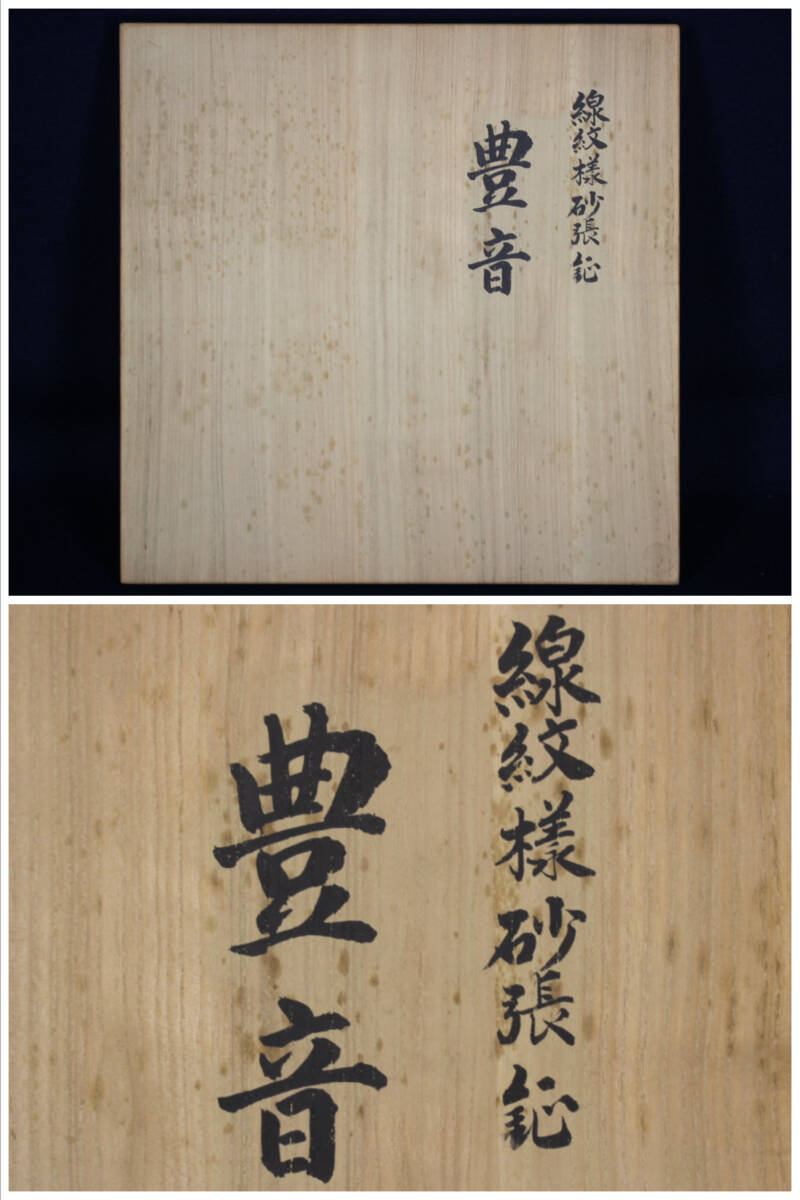 線紋様砂張鉦
豊音
線紋様砂張鉦
豊音